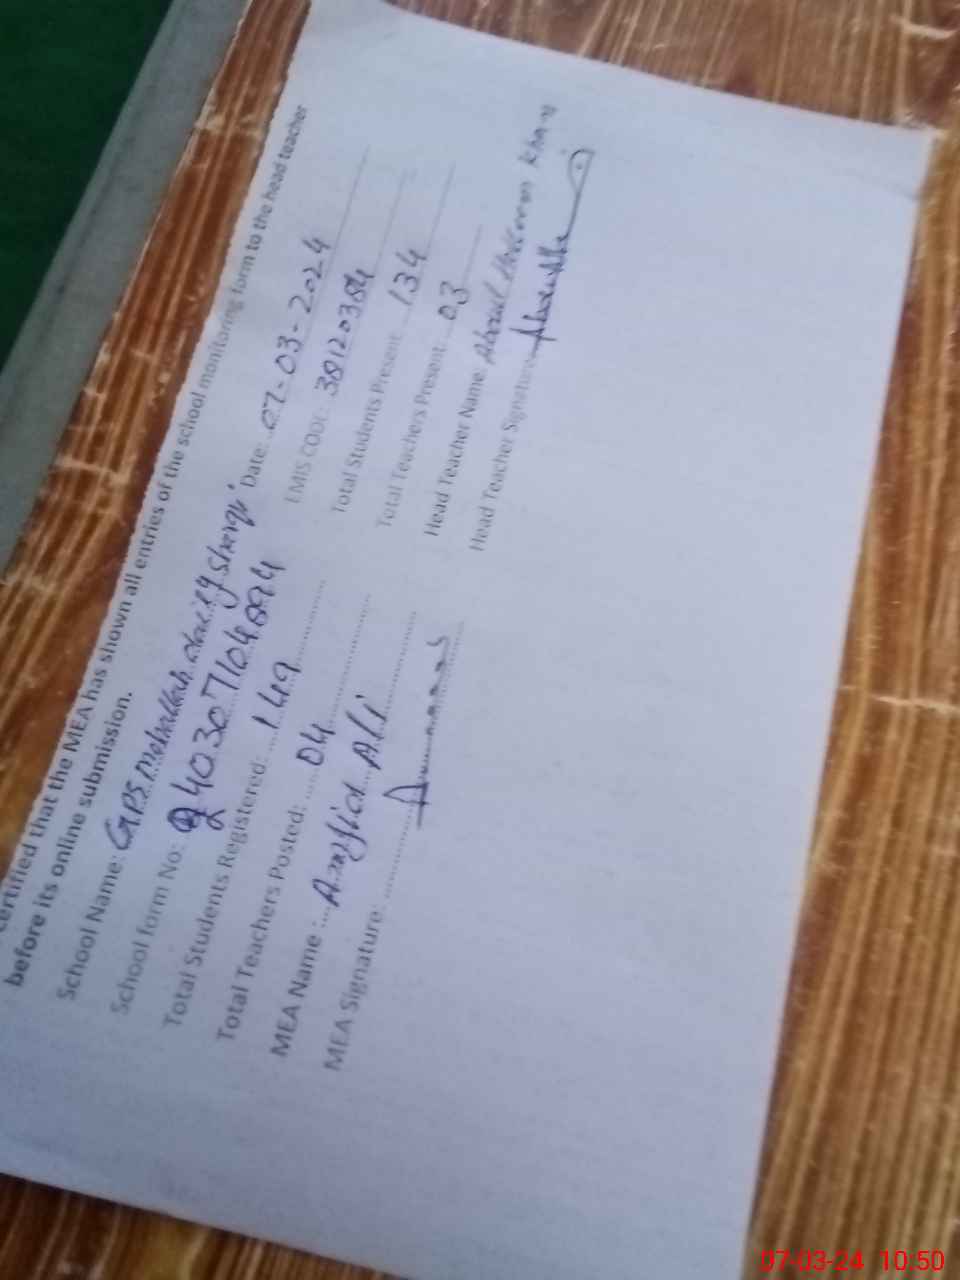 certified that the MEA has shown all entries of the school monitoring form to the head teacher
before its online submission.
School Name: GPS Mohallah Sharqi Date: 07-03-2024
School form No: 240307104894 EMIS CODE: 38120384
Total Students Registered: 149 Total Students Present: 134
Total Teachers Posted: 04 Total Teachers Present: 03
MEA Name: Amjid Ali Head Teacher Name: Khan
MEA Signature: Head Teacher Signature:
07-03-24 10:50